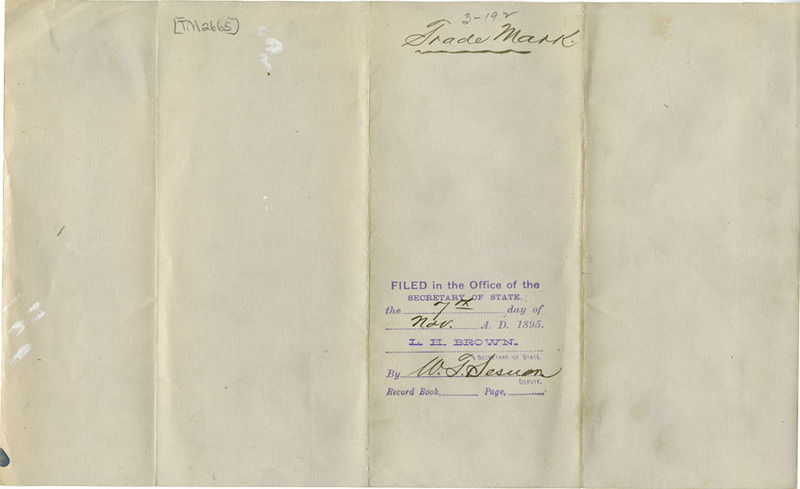 [TM2665]
3-192
Trade Mark.
FILED in the Office of the
SECRETARY OF STATE.
the 7th day of
Nov. A. D. 1895.
L. H. BROWN.
SECRETARY OF STATE.
By W. T. Sesnon
DEPUTY.
Record Book, Page,